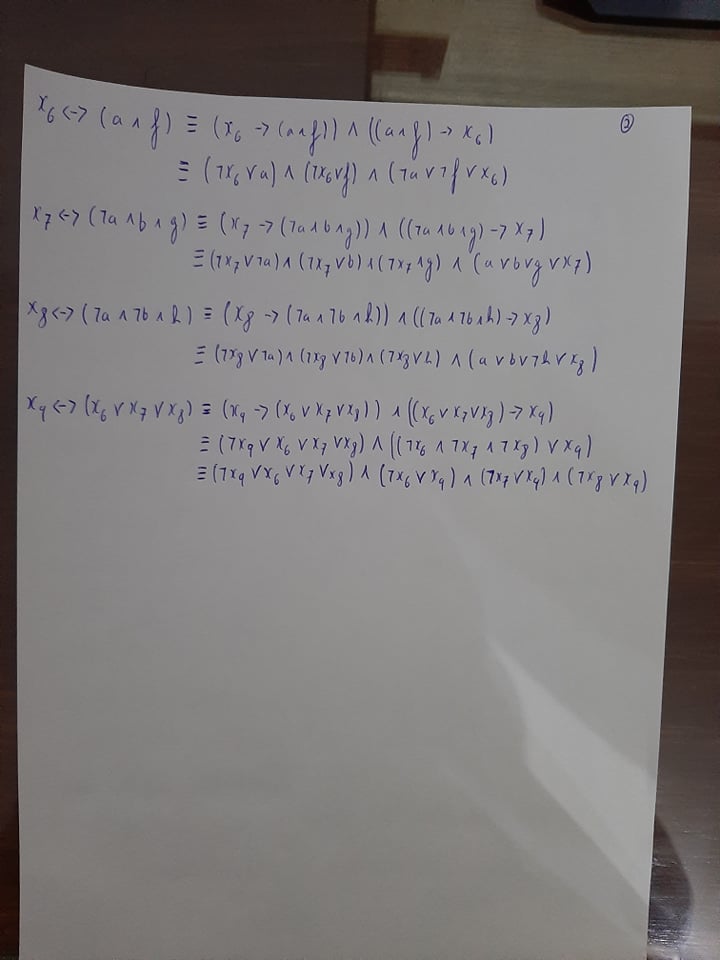 ②
x₆ <-> (a ∧ f) ≡ (x₆ -> (a ∧ f)) ∧ ((a ∧ f) -> x₆)
≡ (¬x₆ ∨ a) ∧ (¬x₆ ∨ f) ∧ (¬a ∨ ¬f ∨ x₆)
x₇ <-> (¬a ∧ b ∧ g) ≡ (x₇ -> (¬a ∧ b ∧ g)) ∧ ((¬a ∧ b ∧ g) -> x₇)
≡ (¬x₇ ∨ ¬a) ∧ (¬x₇ ∨ b) ∧ (¬x₇ ∧ g) ∧ (a ∨ b ∨ g ∨ x₇)
x₈ <-> (¬a ∧ ¬b ∧ h) ≡ (x₈ -> (¬a ∧ ¬b ∧ h)) ∧ ((¬a ∧ ¬b ∧ h) -> x₈)
≡ (¬x₈ ∨ ¬a) ∧ (¬x₈ ∨ ¬b) ∧ (¬x₈ ∨ h) ∧ (a ∨ b ∨ ¬h ∨ x₈)
x₉ <-> (x₆ ∨ x₇ ∨ x₈) ≡ (x₉ -> (x₆ ∨ x₇ ∨ x₈)) ∧ ((x₆ ∨ x₇ ∨ x₈) -> x₉)
≡ (¬x₉ ∨ x₆ ∨ x₇ ∨ x₈) ∧ ((¬x₆ ∧ ¬x₇ ∧ ¬x₈) ∨ x₉)
≡ (¬x₉ ∨ x₆ ∨ x₇ ∨ x₈) ∧ (¬x₆ ∨ x₉) ∧ (¬x₇ ∨ x₉) ∧ (¬x₈ ∨ x₉)